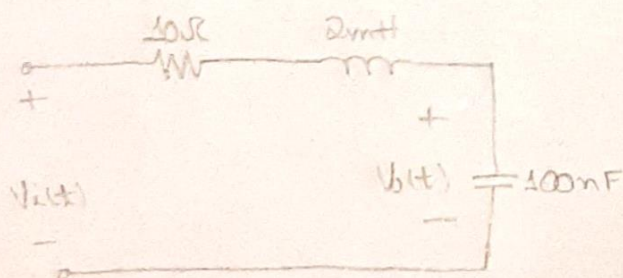 10Ω 2mH
+
+
Vi(t)
Vo(t)
100nF
-
-